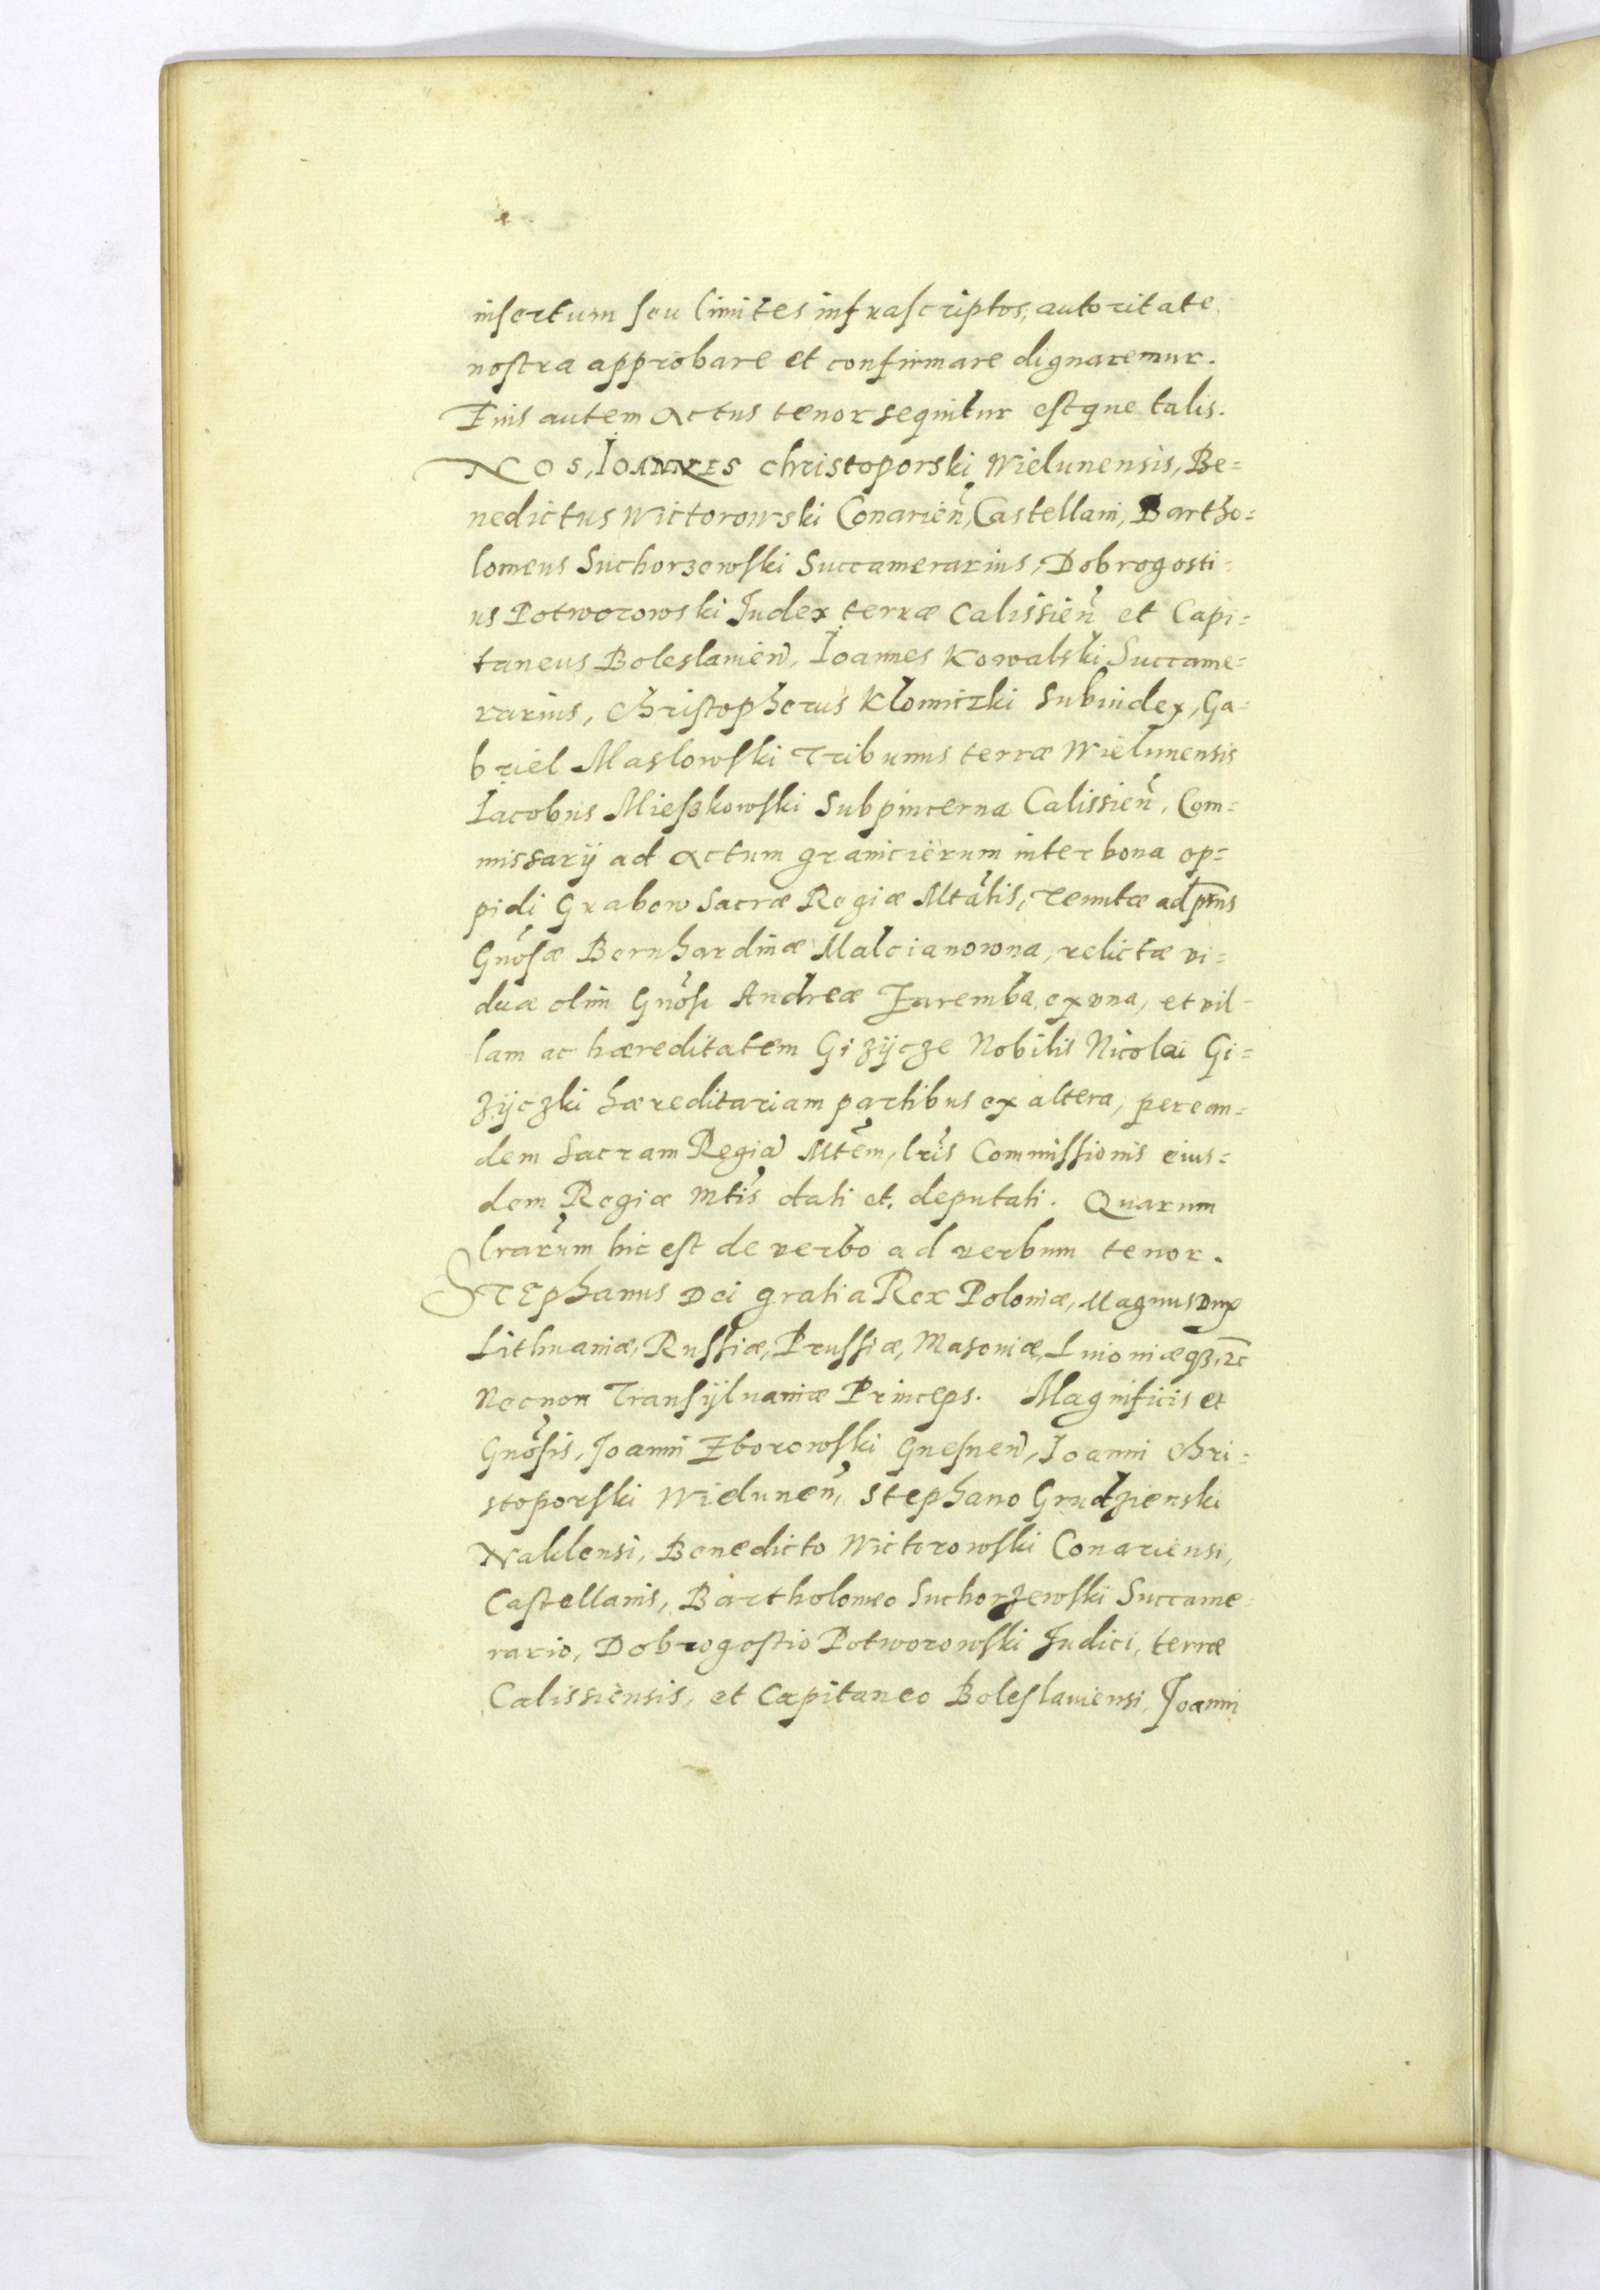 insertum seu limites infrascriptos, autoritate
nostra approbare et confirmare dignaremur.
Eius autem actus tenor sequitur estque talis.
NOS, IOANNES Christoporski Wielunensis, Be=
nedictus Wictorowski Conarien̄, Castellani, Bartho=
lomeus Suchorzewski Succamerarius, Dobrogosti=
us Potworowski Judex terræ Calissien̄ et Capi=
taneus Boleslauien̄, Ioannes Kowalski Succame=
rarius, Christophorus Klomiczki Subiudex, Ga=
briel Maslowski Tribunus terræ Wielunensis
Iacobus Mieszkowski Subpincerna Calissien̄, Com=
missarij ad actum granicierum inter bona op=
pidi Grabow Sacræ Regiæ Mtātis, Tenutæ ad pr̄ns
Gnōsæ Bernhardinæ Malcianowna, relictæ vi=
duæ olim Gnōsi Andreæ Zaremba, ex vna, et vil=
lam ac hæreditatem Gizÿcze Nobilis Nicolai Gi=
zÿczki hæreditariam partibus ex altera, per ean=
dem Sacram Regiā Mtēm, lrīs Commissionis eius=
dem Regiæ Mtīs dati et deputati. Quarum
lrarūm hic est de verbo ad verbum tenor.
STEphanus Dei gratia Rex Poloniæ, Magnus Dux
Lithuaniæ, Russiæ, Prussiæ, Masouiæ, Liuoniæqʒ, ⁊c
Necnon Transÿluaniæ Princeps. Magnificis et
Gnōsis, Joanni Zborowski Gnesnen̄, Ioanni Chri=
stoporski Wielunen̄, Stephano Grudzienski
Naklensi, Benedicto Wictorowski Conariensi,
Castellanis, Bartholomeo Suchorzewski Succame=
rario, Dobrogostio Potworowski Judici, terræ
Calissiensis, et Capitaneo Boleslauiensi, Joanni